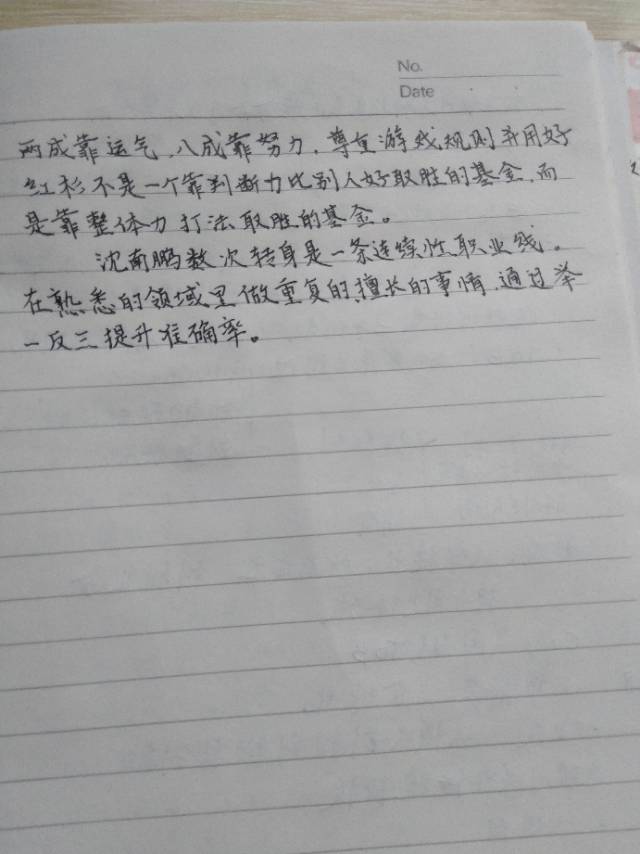 No.
Date
两成靠运气、八成靠努力，尊重游戏规则并用好
红杉不是一个靠判断力比别人好取胜的基金，而
是靠整体力打法取胜的基金。
沈南鹏数次转身是一条连续性职业线。
在熟悉的领域里做重复的、擅长的事情，通过举
一反三提升准确率。